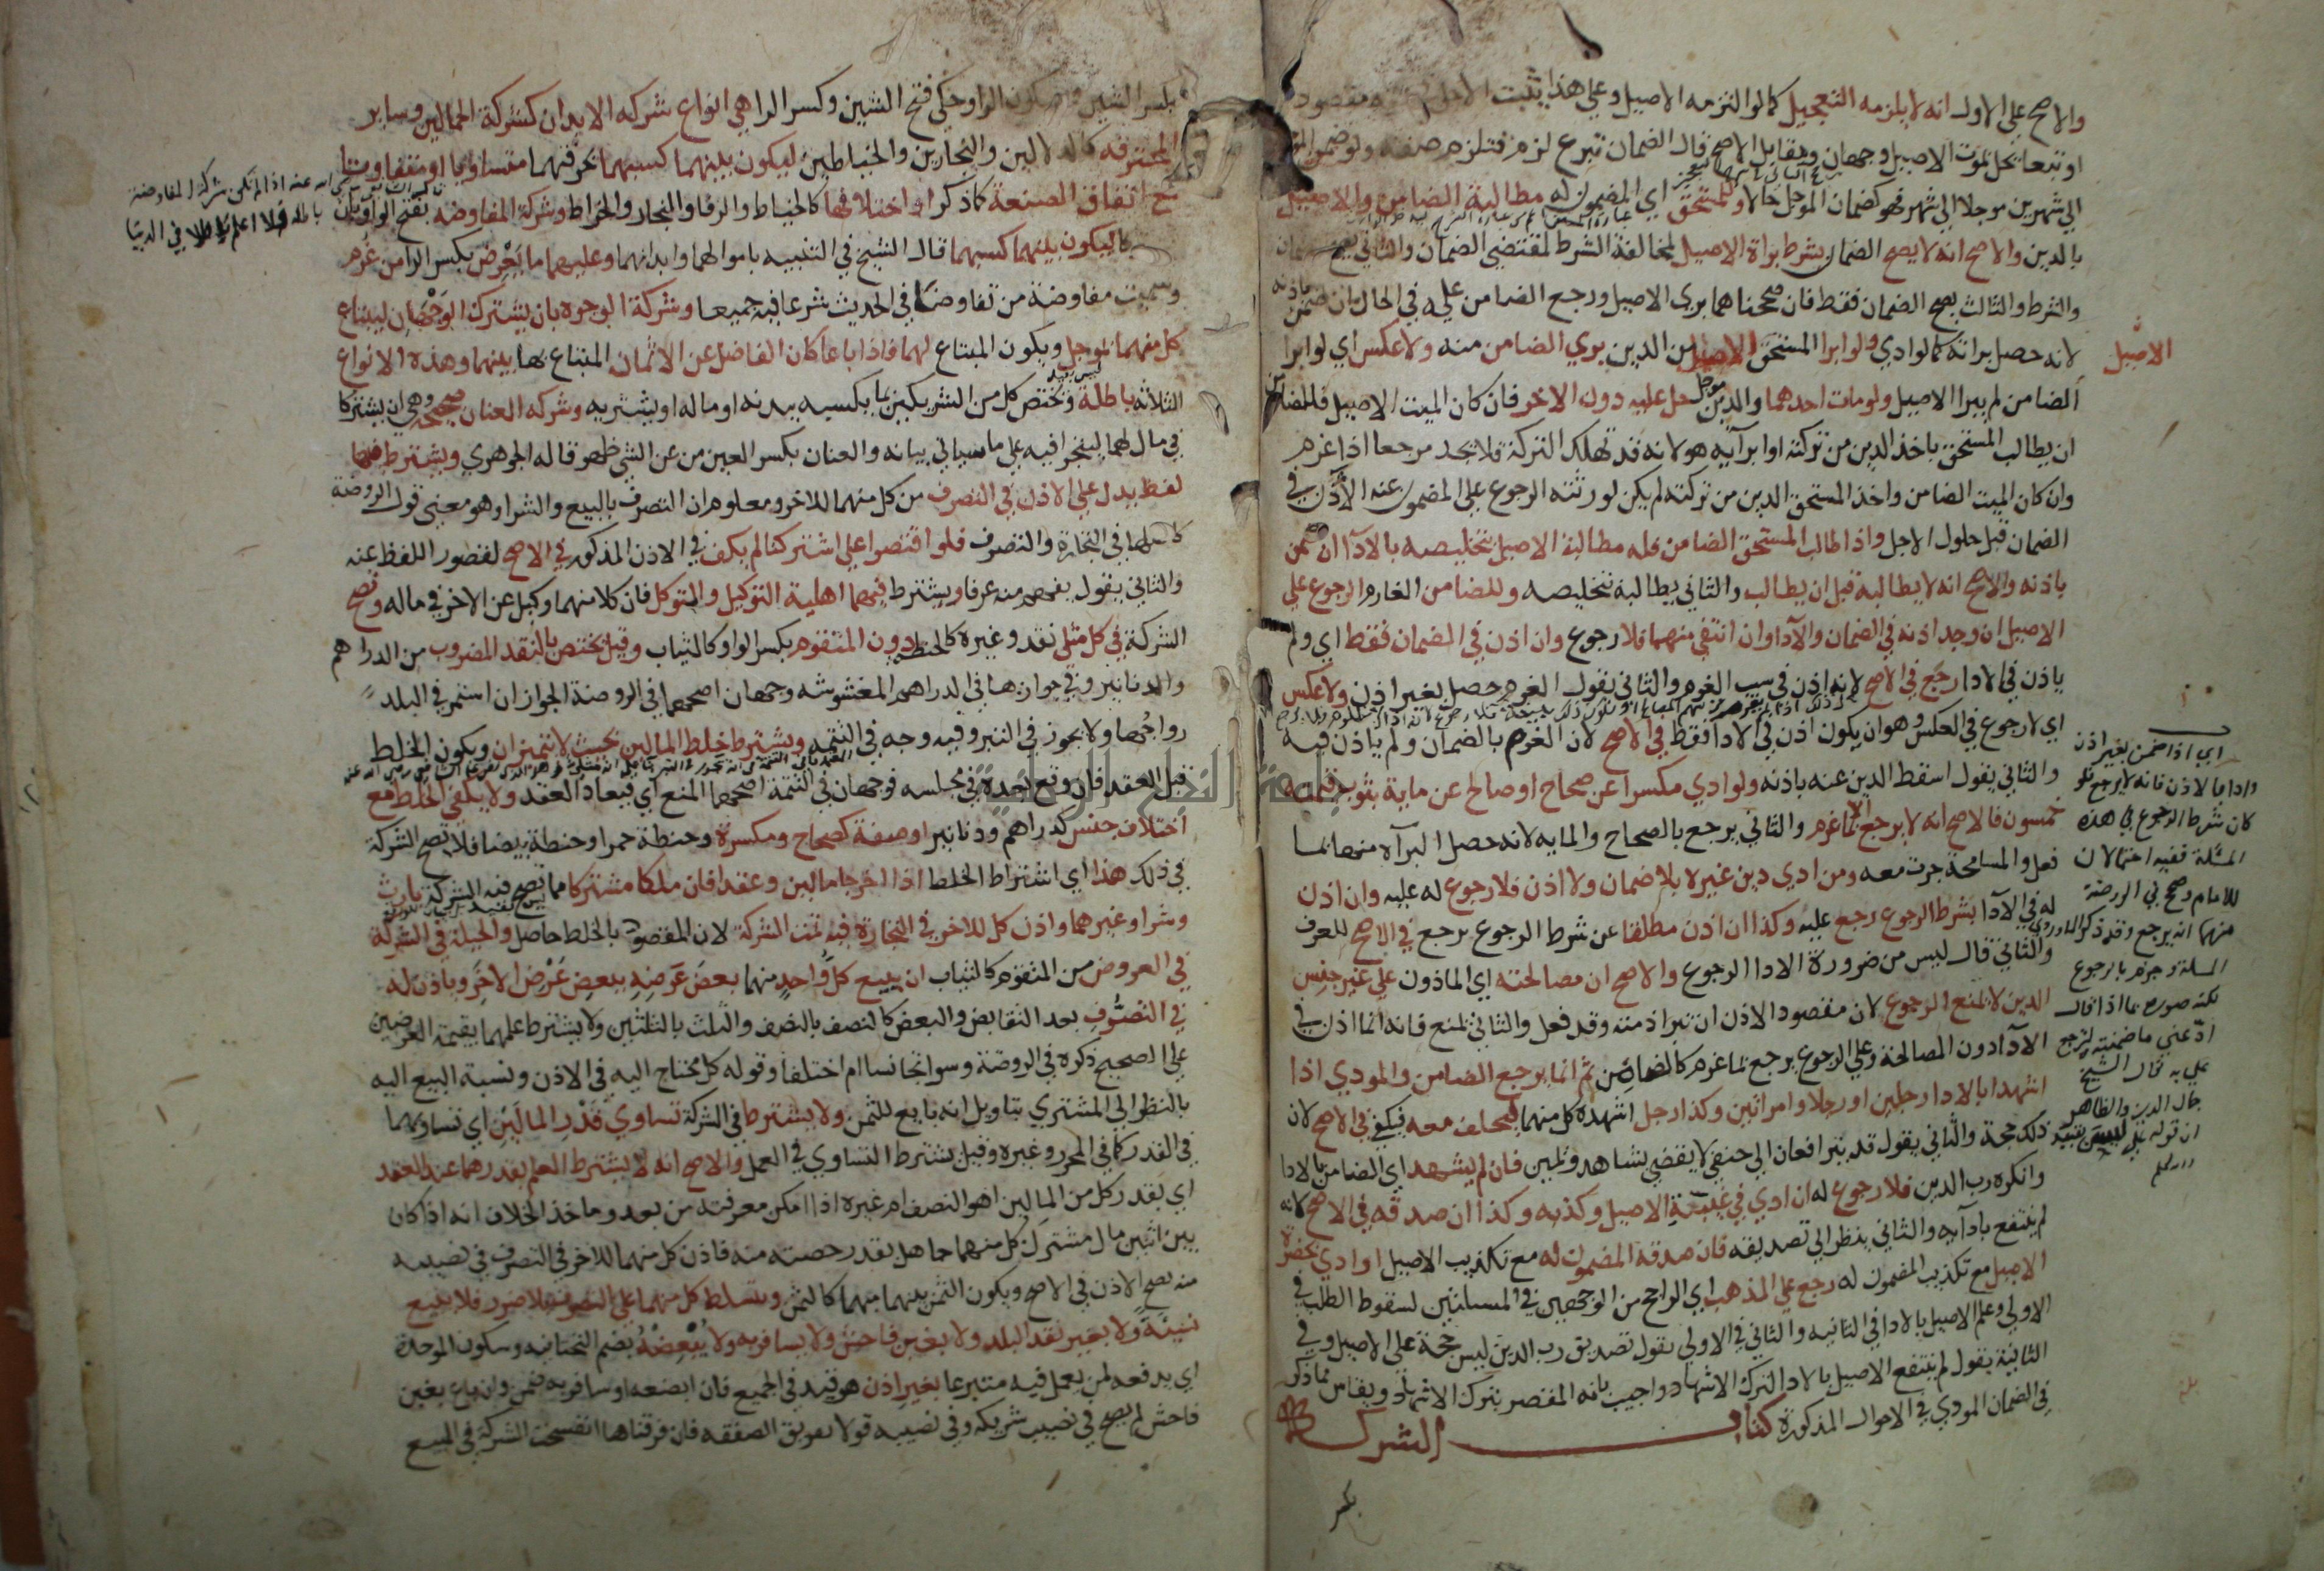 والاصح على الاول انه لا يلزمه التعجيل كما لو التزمه الاصيل وعلى هذا يثبت الاجل مقصودا
او تبعا نحل بموت الاصيل وجهان ومقابل الاصح قال الضمان تبرع لزم فتلزم صفته ولو ضمن
الى شهرين موجلا الى شهر فهو كضمان الموجل حالا وللمستحق اي المضمون له مطالبة الضامن والاصيل
بالدين والاصح انه لا يصح الضمان بشرط براة الاصيل لمخالفة الشرط لمقتضى الضمان والثاني يصح الضمان
والشرط والثالث يصح الضمان فقط فان صححناهما بري الاصيل ورجع الضامن عليه في الحال ان ضمن باذنه
لانه حصل براته كما لو ادي ولو ابرا المستحق الاصيل من الدين بري الضامن منه ولا عكس اي لو ابرا
الاصيل
الضامن لم يبرا الاصيل ولو مات احدهما والدين موجل حل عليه دون الاخر فان كان الميت الاصيل فللضامن
ان يطالب المستحق باخذ الدين من تركته او ابرآيه هو لانه قد تهلك التركة فلا يجد مرجعا اذا غرم
وان كان الميت الضامن واخذ المستحق الدين من تركته لم يكن لورثته الرجوع على المضمون عنه الآذن في
الضمان قبل حلول الاجل واذا طالب المستحق الضامن فله مطالبة الاصيل بتخليصه بالادآ ان ضمن
باذنه والاصح انه لا يطالبه قبل ان يطالب والثاني يطالبه بتخليصه وللضامن الغارم الرجوع على
الاصيل ان وجد اذنه في الضمان والادآ وان انتفى منهما فلا رجوع وان اذن في الضمان فقط اي ولم
ياذن في الادا رجع في الاصح لانه اذن في سبب الغرم والثاني يقول الغرم حصل بغير اذن ولا عكس
اي لا رجوع في العكس وهو ان يكون اذن في الادا فقط في الاصح لان الغرم بالضمان ولم ياذن فيه
والثاني يقول اسقط الدين عنه باذنه ولو ادي مكسرا عن صحاح او صالح عن ماية بثوب قيمته
خمسون فالاصح انه لا يرجع الا بما غرم والثاني يرجع بالصحاح والمايه لانه حصل البرآة منها بما
فعل والمسامحة جرت معه ومن ادي دين غيره بلا ضمان ولا اذن فلا رجوع له عليه وان اذن
له في الادآ بشرط الرجوع رجع عليه وكذا ان اذن مطلقا عن شرط الرجوع يرجع في الاصح للعرف
والثاني قال ليس من ضرورة الادا الرجوع والاصح ان مصالحته اي الماذون على غير جنس
الدين لا تمنع الرجوع لان مقصود الاذن ان تبرا ذمته وقد فعل والثاني تمنع فانه انما اذن في
الادآ دون المصالحة وعلى الرجوع يرجع بما غرم كالضامن ثم انما يرجع الضامن والمودي اذا
اشهدا بالادا رجلين او رجلا وامراتين وكذا رجل اشهده كل منهما ليحلف معه فيكفي في الاصح لان
ذلك حجة والثاني يقول قد يترافعان الى حنفي لا يقضي بشاهد ويمين فان لم يشهد اي الضامن بالادا
وانكره رب الدين فلا رجوع له ان ادي في غيبة الاصيل وكذبه وكذا ان صدقه في الاصح لانه
لم ينتفع بادآيه والثاني ينظر الى تصديقه فان صدقه المضمون له مع تكذيب الاصيل او ادي بحضرة
الاصيل مع تكذيب المضمون له رجع على المذهب اي الراجح من الوجهين في المسئلتين لسقوط الطلب في
الاولى وعلم الاصيل بالادا في الثانيه والثاني في الاولى يقول تصديق رب الدين ليس حجة على الاصيل وفي
الثانية يقول لم ينتفع الاصيل بالادا لترك الاشهاد واجيب بانه المقصر بترك الاشهاد ويقاس بما ذكر
في الضمان المودي في الاحوال المذكورة كتاب الشركة
اي اذا ضمن بغير اذن
وادا بالاذن فانه لا يرجع فلو
كان شرط الرجوع في هذه
المسئلة ففيه احتمالان
للامام وصحح في الروضة
منهما انه يرجع وقد ذكر الماوردي
المسئلة وجزم بالرجوع
لكنه صورها بما اذا قال
ادّ عني ما ضمنته لترجع
علي به قال الشيخ
جمال الدين والظاهر
ان قوله علي ليس بقيد
بكسر
بكسر الشين وسكون الرا وحكي فتح الشين وكسر الرا هي انواع شركه الابدان كشركة الحمالين وساير
المحترفه كالدلالين والنجارين والخياطين ليكون بينهما كسبهما بحرفتهما متساويا او متفاوتا
مع اتفاق الصنعة كما ذكر او اختلافها كالخياط والرفا والنجار والخراط وشركة المفاوضه بفتح الواو بان
باطله فلا اعلم باطلا في الدنيا
ليكون بينهما كسبهما قال الشيخ في التنبيه باموالهما وابدانهما وعليهما ما يعرض بكسر الرا من غرم
وسميت مفاوضة من تفاوضا في الحديث شرعا فيه جميعا وشركة الوجوه بان يشترك الوجهان ليبتاع
كل منهما بموجل ويكون المبتاع لهما فاذا باعا كان الفاضل عن الاثمان المبتاع بها بينهما وهذه الانواع
الثلاثه باطلة ويختص كل من الشريكين بما يكسبه ببدنه او ماله او يشتريه وشركه العنان صحيحة وهي ان يشتركا
في مال لهما ليتجرا فيه على ما سياتي بيانه والعنان بكسر العين من عن الشي ظهر قاله الجوهري ويشترط فيها
لفظ يدل على الاذن في التصرف من كل منهما للاخر ومعلوم ان التصرف بالبيع والشرا وهو معنى قول الروضة
في التجارة والتصرف فلو اقتصرا على اشتركنا لم يكف في الاذن المذكور في الاصح لقصور اللفظ عنه
والثاني يقول يفهم منه عرفا ويشترط فيهما اهلية التوكيل والتوكل فان كلا منهما وكيل عن الاخر في ماله وتصح
الشركة في كل مثلي نقد وغيره كالحنطه دون المتقوم بكسر الواو كالثياب وقيل يختص بالنقد المضروب من الدراهم
والدنانير وفي جوازها في الدراهم المغشوشه وجهان اصحهما في الروضة الجواز ان استمر في البلد
رواجها ولا يجوز في التبر وفيه وجه في التتمه ويشترط خلط المالين بحيث لا يتميزان ويكون الخلط
قبل العقد فان وقع بعده في مجلسه فوجهان في التتمة اصحهما المنع اي فيعاد العقد ولا يكفي الخلط مع
اختلاف جنس كدراهم ودنانير او صفة كصحاح ومكسرة وحنطة حمرا وحنطة بيضا فلا تصح الشركة
في ذلك هذا اي اشتراط الخلط اذا اخرجا مالين وعقدا فان ملكا مشتركا مما تصح فيه الشركة بارث
وشرا وغيرهما واذن كل للاخر في التجارة فيه تمت الشركة لان المقصود بالخلط حاصل والحيلة في الشركة
في العروض من المتقوم كالثياب ان يبيع كل واحد منهما بعض عرضه ببعض عرض الاخر وياذن له
في التصرف بعد التقابض والبعض كالنصف بالنصف والثلث بالثلثين ولا يشترط علمهما بقيمة العرضين
على الصحيح ذكره في الروضة وسوا تجانسا ام اختلفا وقوله كل محتاج اليه في الاذن ونسبة البيع اليه
بالنظر الى المشتري بتاويل انه بايع للثمن ولا يشترط في الشركة تساوي قدر المالين اي تساويهما
في القدر كما في المحرر وغيره وقيل يشترط التساوي في العمل والاصح انه لا يشترط العلم بقدرهما عند العقد
اي بقدر كل من المالين اهو النصف ام غيره اذا امكن معرفته من بعد وماخذ الخلاف انه اذا كان
بين اثنين مال مشترك كل منهما جاهل بقدر حصته منه فاذن كل منهما للاخر في التصرف في نصيبه
منه يصح الاذن في الاصح ويكون الثمن بينهما مبهما كالمثمن ويتسلط كل منهما على التصرف بلا ضرر فلا يبيع
نسيئة ولا بغير نقد البلد ولا بغبن فاحش ولا يسافر به ولا يبضعه بضم التحتانيه وسكون الموحدة
اي يدفعه لمن يعمل فيه متبرعا بغير اذن هو قيد في الجميع فان ابضعه او سافر به ضمن وان باع بغبن
فاحش لم يصح في نصيب شريكه وفي نصيبه قولا تفريق الصفقه فان فرقناها انفسخت الشركة في المبيع
جامعة النجاح الوطنية